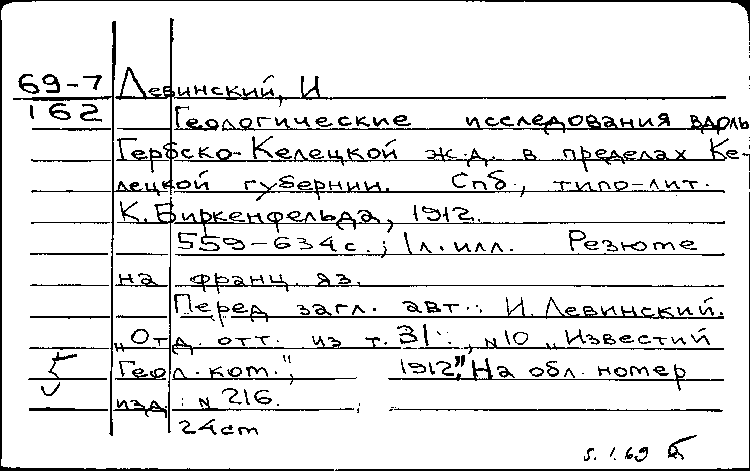 69-7 Левинский, И
162 Геологические исследования вдоль
Гербско-Келецкой ж.д. в пределах Ке-
лецкой губернии. Спб, типо-лит.
К. Биркенфельда, 1912.
559-634 с.; 1 л. илл. Резюме
на франц. яз.
Перед загл. авт.: И. Левинский.
„Отд. отт. из т. 31:, N10 „Известий
Геол. ком.", 1912". На обл. номер
изд.: N 216.
24 cm
5.1.69